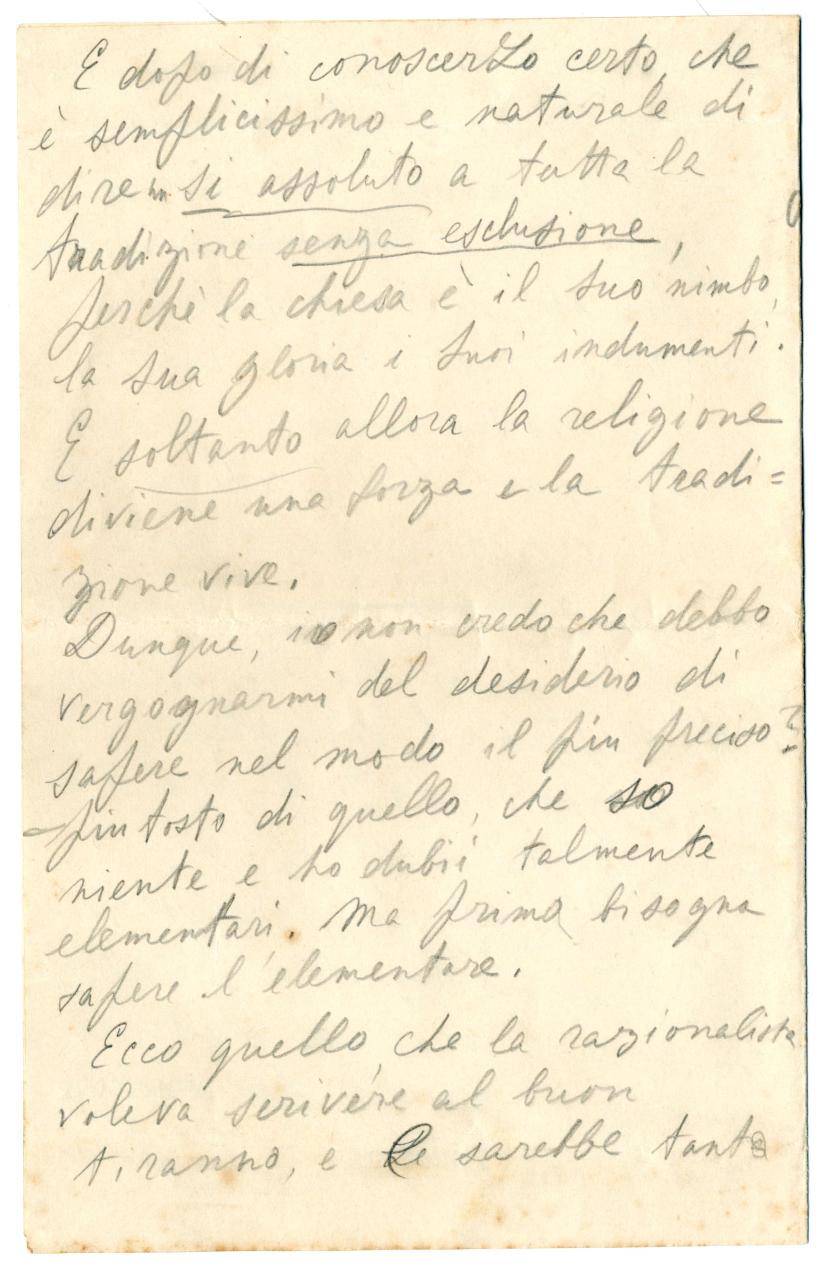 E dopo di conoscerLo certo, che
è semplicissimo e naturale di
dire un si assoluto a tutta la
tradizione senza esclusione,
perchè la chiesa è il suo nimbo,
la sua gloria i suoi indumenti.
E soltanto allora la religione
diviene una forza e la tradi=
zione vive.
Dunque, io non credo che debbo
vergognarmi del desiderio di
sapere nel modo il piu preciso?
piutosto di quello, che so
niente e ho dubii talmente
elementari. Ma prima bisogna
sapere l'elementare.
Ecco quello, che la razionalista
voleva scrivere al buon
tiranno, e Le sarebbe tanto